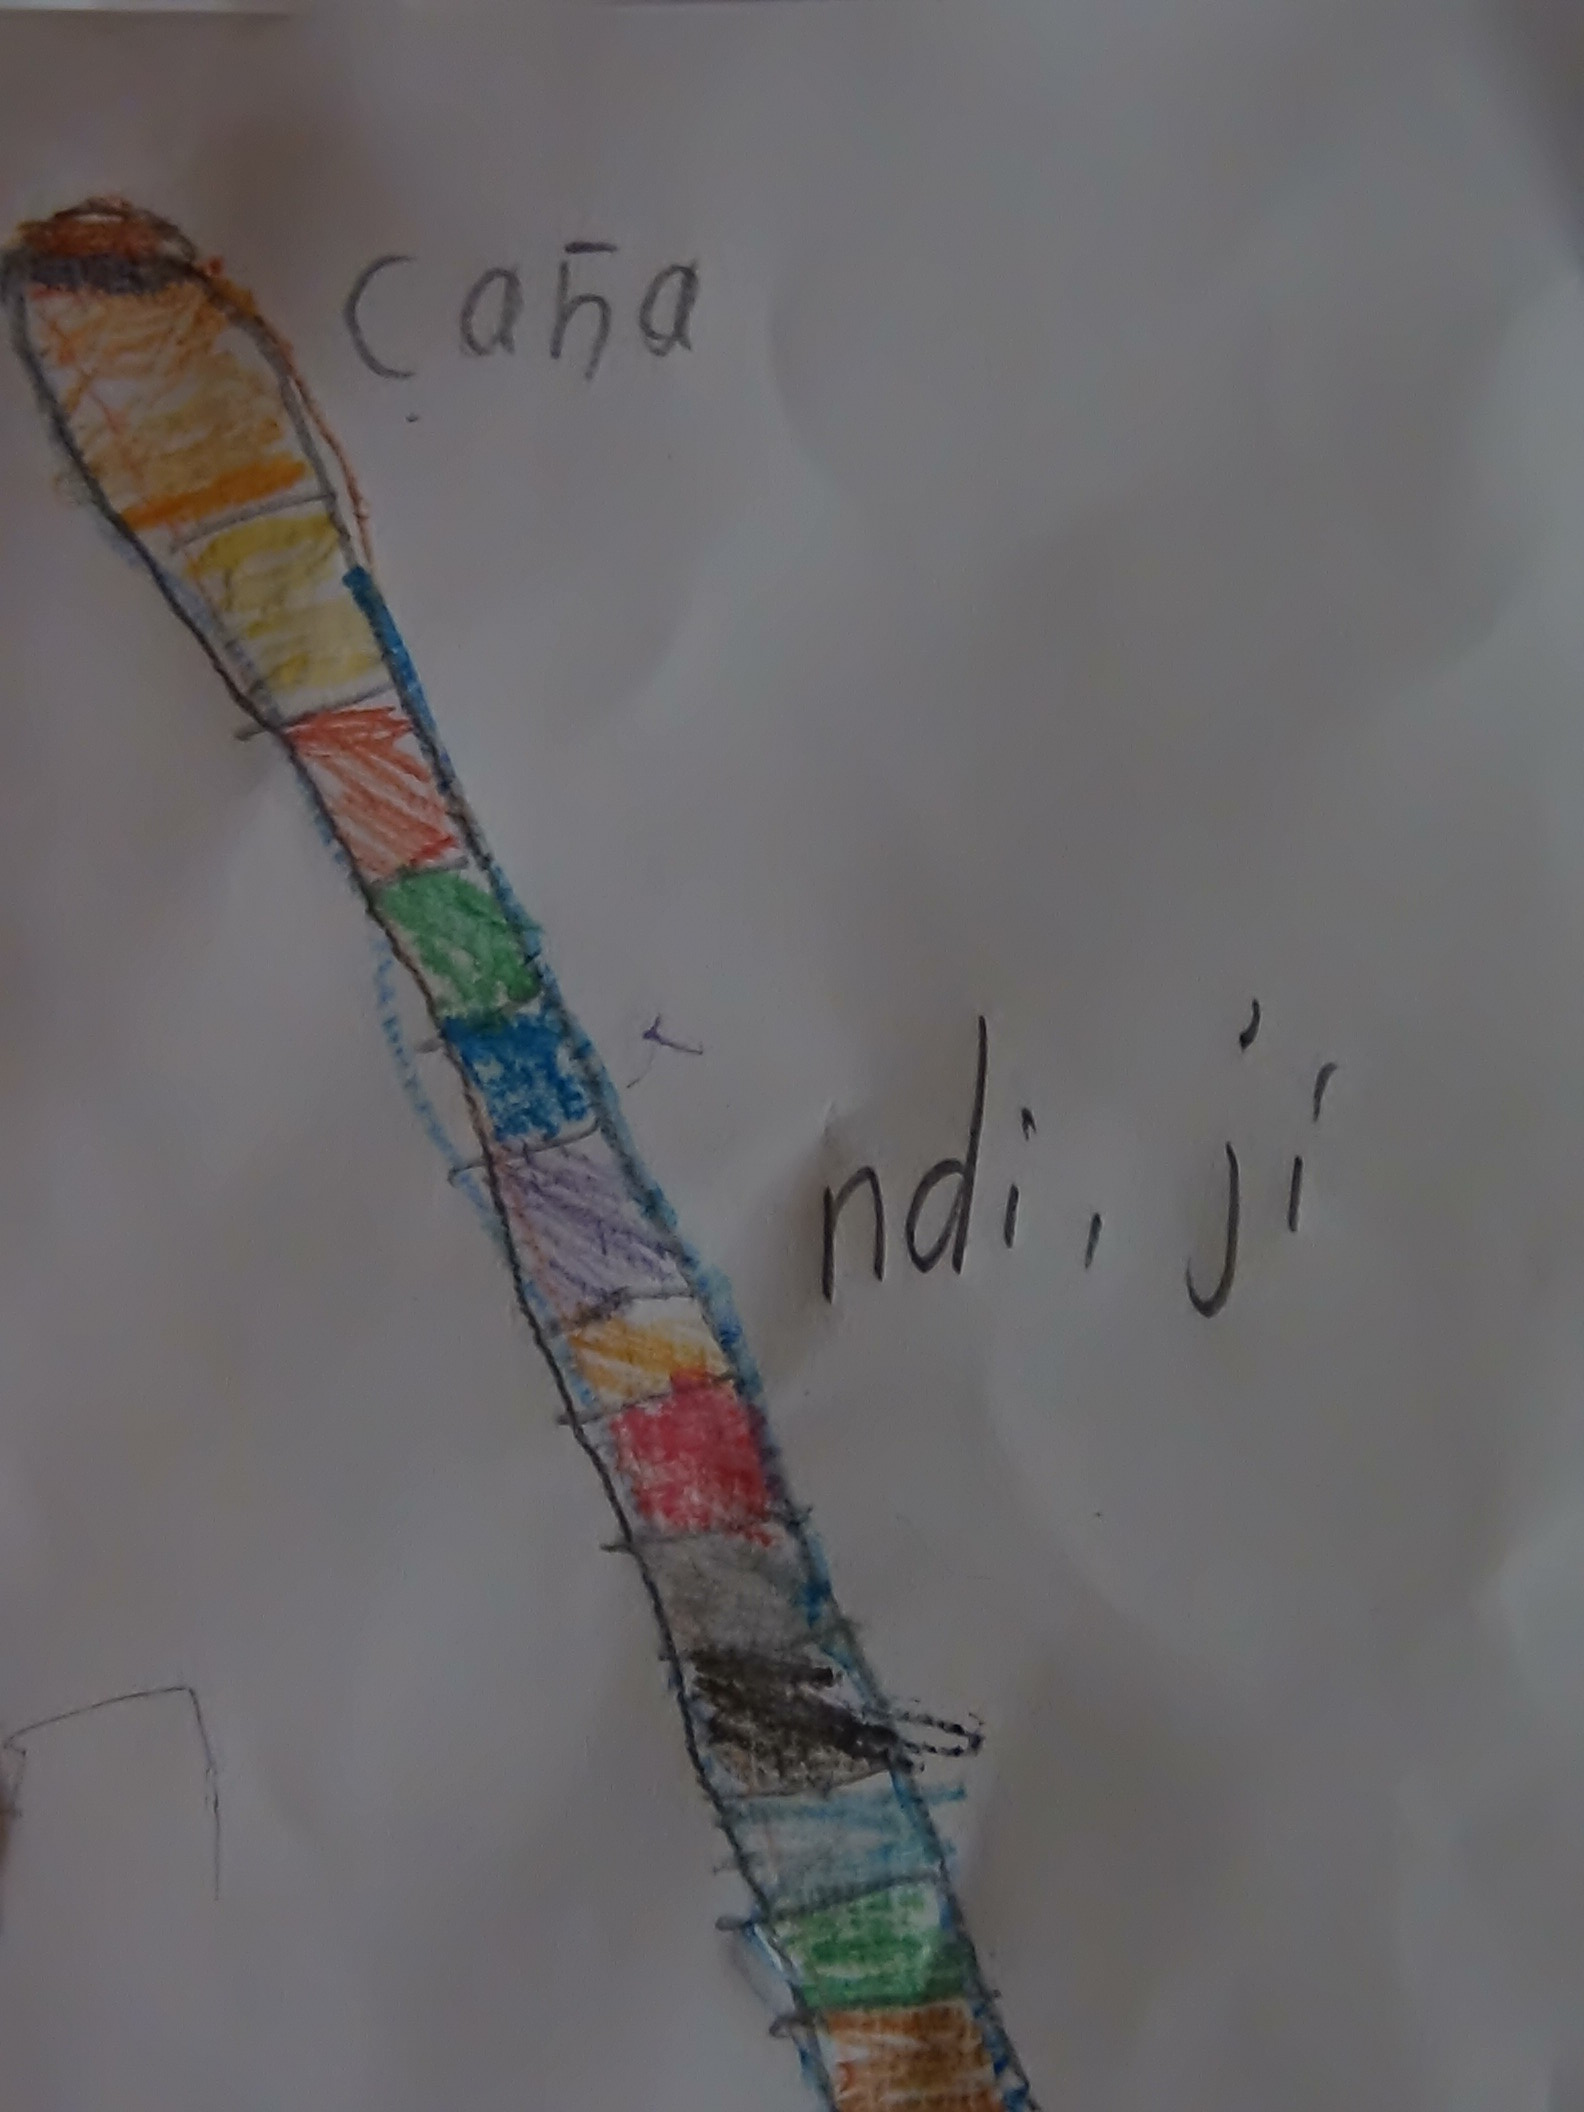 caña
ndi, ji